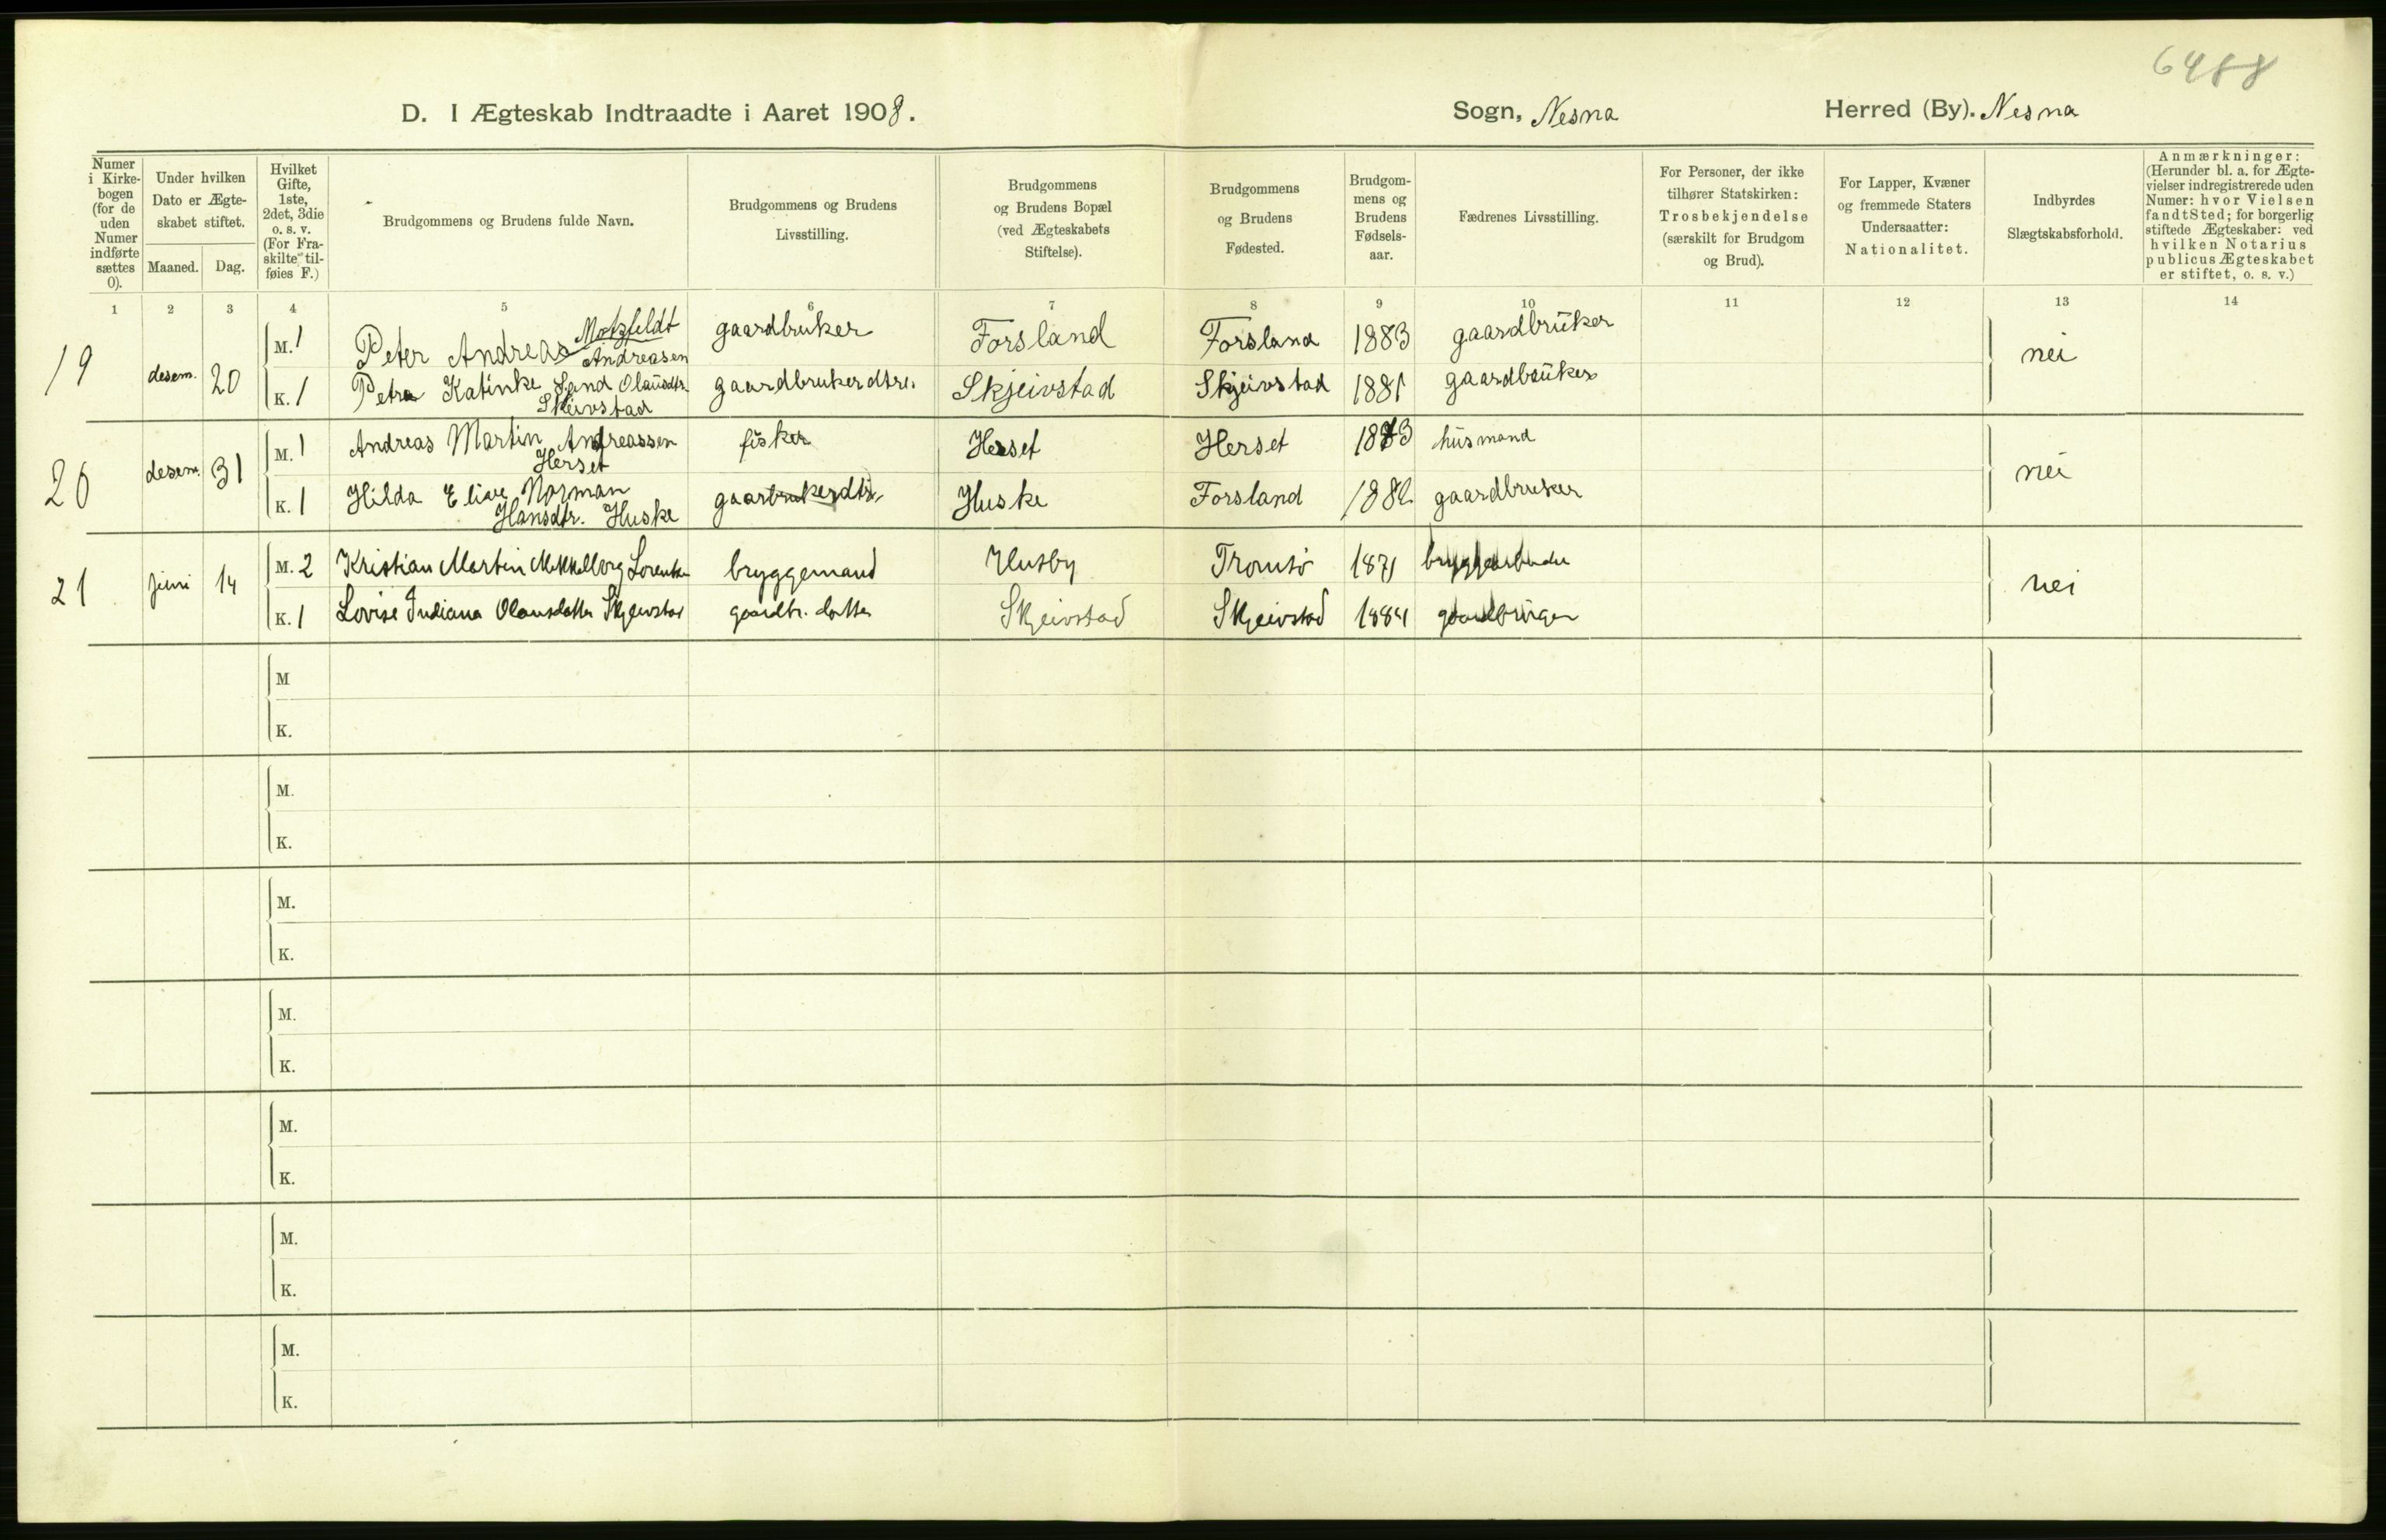 6488
D. I Ægteskab Indtraadte i Aaret 1908. Sogn, Nesna Herred (By). Nesna
Numer i Kirke-bogen (for de uden Numer indførte sættes 0).
Under hvilken Dato er Ægte-skabet stiftet.
Maaned. Dag.
Hvilket Gifte, 1ste, 2det, 3die o. s. v. (For Fra-skilte til-føies F.)
Brudgommens og Brudens fulde Navn.
Brudgommens og Brudens Livsstilling.
Brudgommens og Brudens Bopæl (ved Ægteskabets Stiftelse).
Brudgommens og Brudens Fødested.
Brudgom-mens og Brudens Fødsels-aar.
Fædrenes Livsstilling.
For Personer, der ikke tilhører Statskirken: Trosbekjendelse (særskilt for Brudgom og Brud).
For Lapper, Kvæner og fremmede Staters Undersaatter: Nationalitet.
Indbyrdes Slægtskabsforhold.
Anmærkninger: (Herunder bl. a. for Ægte-vielser indregistrerede uden Numer: hvor Vielsen fandt Sted; for borgerlig stiftede Ægteskaber: ved hvilken Notarius publicus Ægteskabet er stiftet, o. s. v.)
1 2 3 4 5 6 7 8 9 10 11 12 13 14
19 desem. 20
M. 1 Peter Andreas Motzfeldt Andreasen gaardbruker Forsland Forsland 1883 gaardbruker nei
K. 1 Petra Katinke Sand Olausdtr. Skeivstad gaardbrukerdtr. Skjeivstad Skjeivstad 1881 gaardbruker
20 desem. 31
M. 1 Andreas Martin Andreassen Herset fisker Herset Herset 1873 husmand nei
K. 1 Hilda Eline Norman Hansdtr. Huske gaarbrukerdtr. Huske Forsland gaardbruker
21 juni 14
M. 2 Kristian Martin bryggemand Husby Tromsø 1871 nei
K. 1 Lovise Indiana Olausdatter Skjeivstad gaardbr. datter Skjeivstad Skjeivstad 1884
M
K.
M.
K.
M.
K.
M.
K.
M.
K.
M.
K.
M.
K.